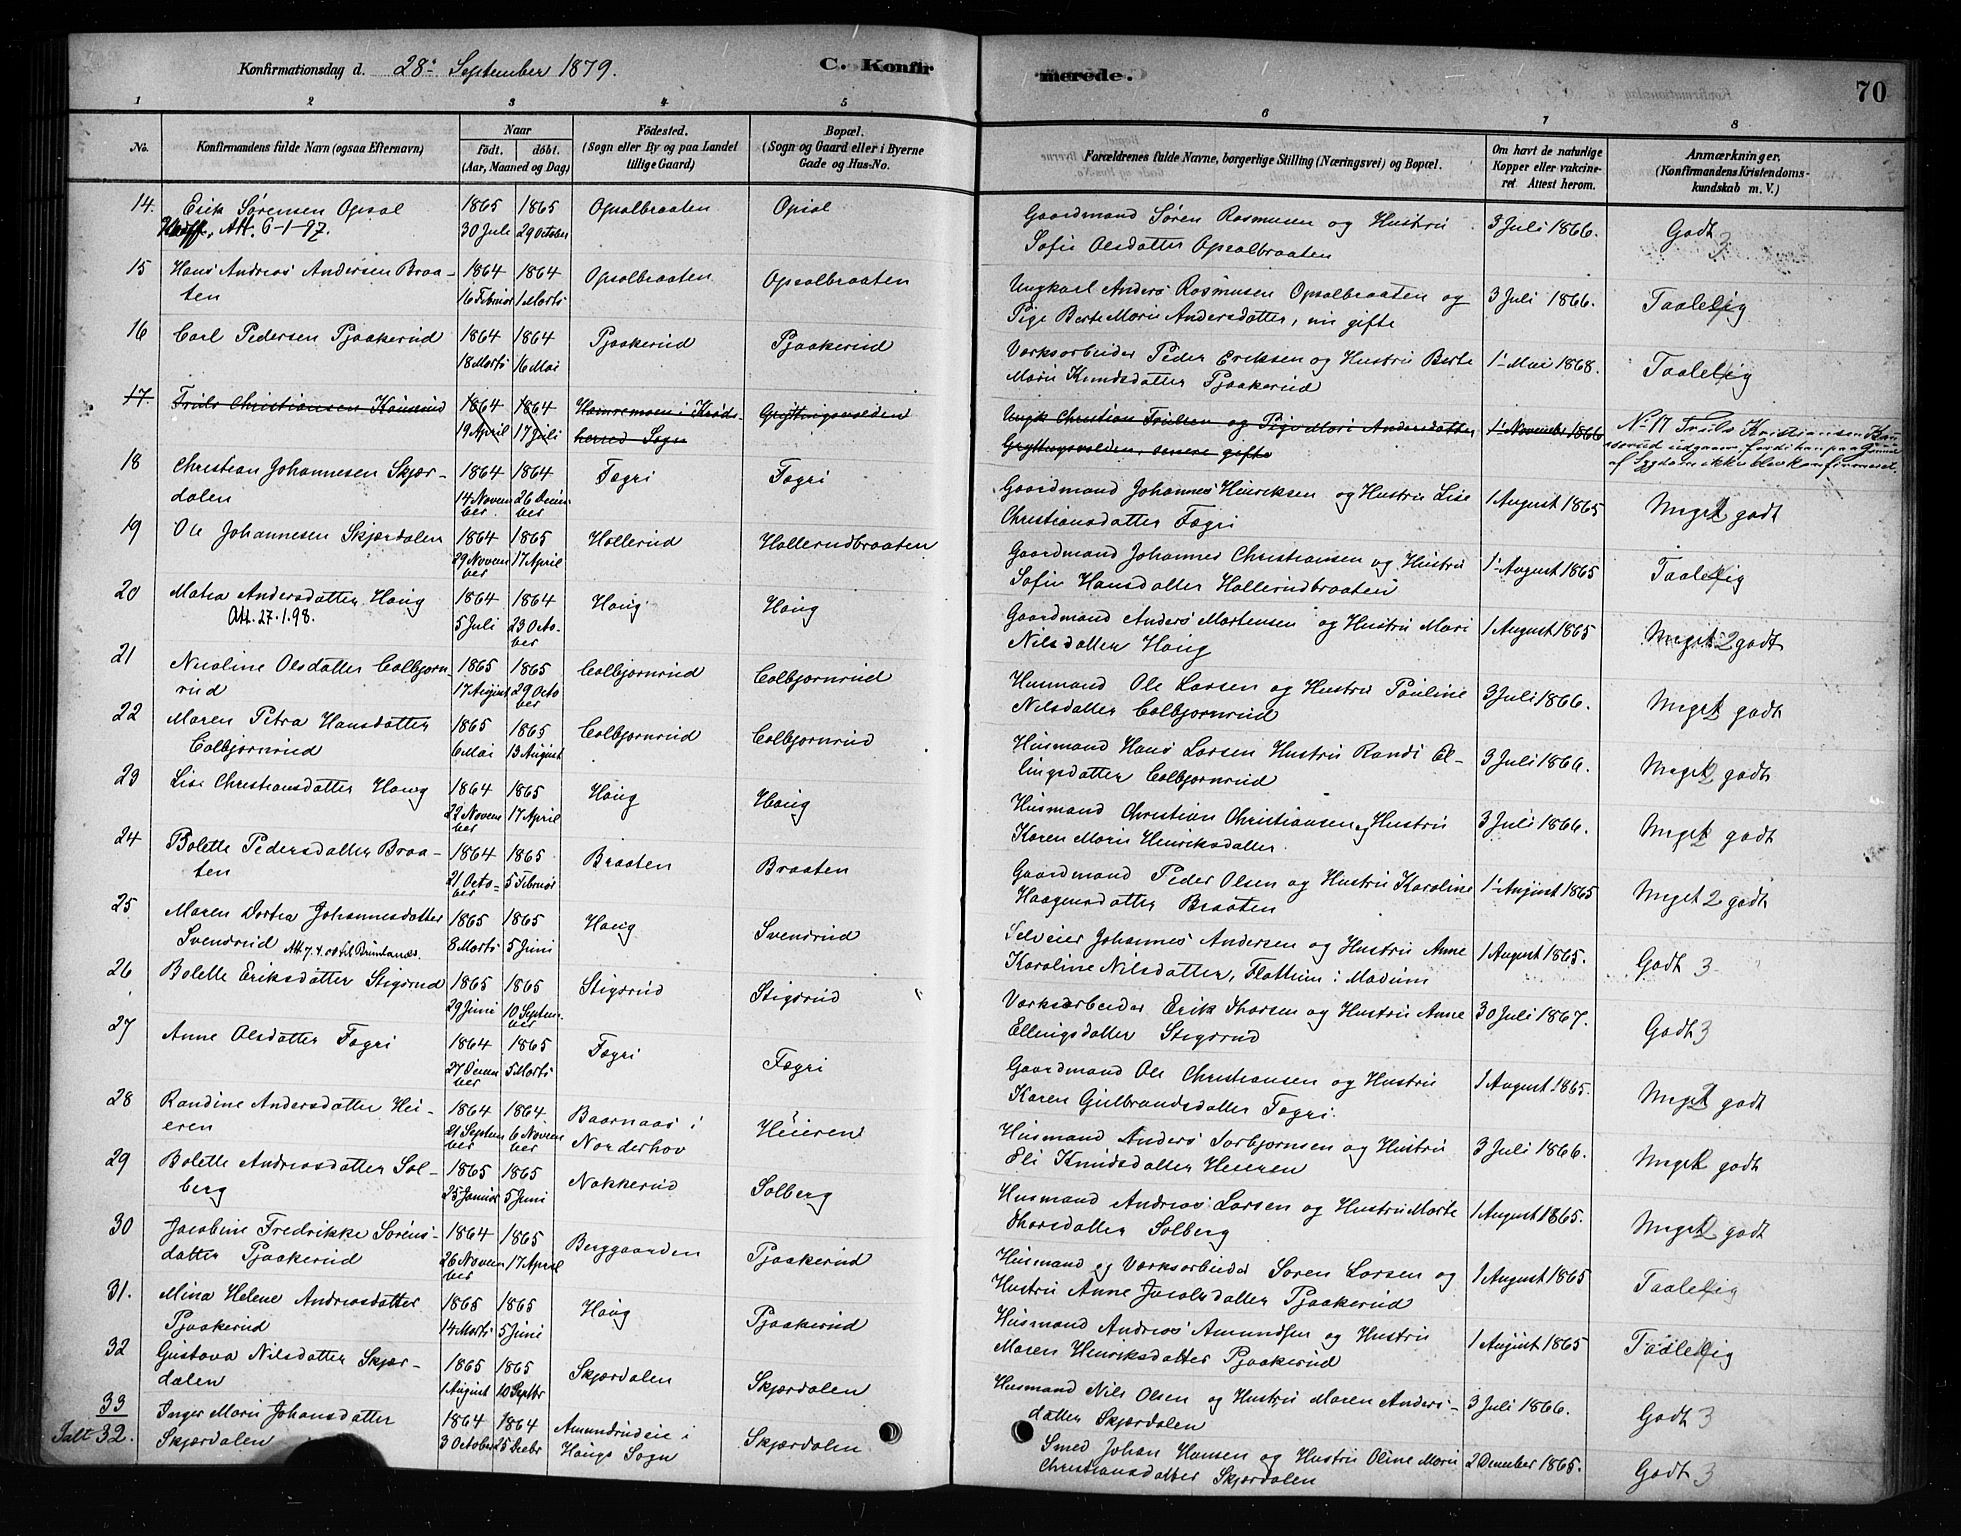 Konfirmationsdag d. 28. September 1879. C. Konfirmerede. 70
1 2 3 4 5 6 7 8
No. Konfirmandens fulde Navn (ogsaa Efternavn) Naar født. døbt. (Aar, Maaned og Dag) Fødested. (Sogn eller By og paa Landet tillige Gaard) Bopæl. (Sogn og Gaard eller i Byerne Gade og Hus-No. Forældrenes fulde Navne, borgerlige Stilling (Næringsvei) og Bopæl. Om havt de naturlige Kopper eller vakcineret Attest herom. Anmærkninger, (Konfirmandens Kristendomskundskab m. V.)
14. Erik Sørensen Opsal 1865 30 Juli 1865 29 October Opsalbraaten Opsal Gaardmand Søren Rasmusen og Hustru 3 Juli 1866. Godt 3
Att. 6-1-97. Sofie Olsdatter Opsalbraaten
15 Hans Andreas Andersen Braa- 1864 16 Februar 1864 1 Marts Opsalbraaten Opsalbraaten Ungkarl Anders Rasmusen Opsalbraaten og 3 Juli 1866. Taalelig
ten Pige Berte Marie Andersdatter, nu gifte
16 Carl Pedersen Pjaakerud 1864 18 Marts 1864 16 Mai Pjaakerud Pjaakerud Værksarbeider Peder Eriksen og Hustru Berte 1 Mai 1868. Taalelig
Marie Knudsdatter Pjaakerud
17. Truls Christiansen 1864 19 April 1864 17 Juli i Krøds- Ungk Christian Trulsen og Pige Mari Andersdatter 1 November 1866 No 17 Truls Kristiansen
herred Sogn senere gifte udgaar fordi han paa Grund af Sygdom ikke blev konfirmeret
18 Christian Johannesen Skjær- 1864 14 November 1864 26 December Fægri Fægri Gaardmand Johannes Henriksen og Hustru Lise 1 August 1865 Meget 2 godt
dalen Christiansdatter Fægri
19 Ole Johannesen Skjærdalen 1864 29 November 1865 17 April Hollerud Hollerudbraaten Gaardmand Johannes Christiansen og Hustru 1 August 1865 Taalelig
Sofie Hansdatter Hollerudbraaten
20 Matea Andersdatter Haug 1864 5 Juli 1864 23 October Haug Haug Gaardmand Anders Mortensen og Hustru Mari 1 August 1865 Meget 2 godt
Att. 27.1.98. Nilsdatter Haug
21 Nicoline Olsdatter Colbjørn- 1865 17 August 1865 29 October Colbjørnrud Colbjørnrud Husmand Ole Larsen og Hustru Pauline 3 Juli 1866. Meget 2 godt
rud Nilsdatter Colbjørnrud
22 Maren Petra Hansdatter 1865 6 Mai 1865 13 August Colbjørnrud Colbjørnrud Husmand Hans Larsen Hustru Randi El- 3 Juli 1866. Meget 2 godt
Colbjørnrud lingsdatter Colbjørnrud
23 Lise Christiansdatter Haug 1864 22 November 1865 17 April Haug Haug Husmand Christian Christiansen og Hustru 3 Juli 1866. Meget 2 godt
Karen Marie Henriksdatter
24 Bolette Pedersdatter Braa- 1864 21 October 1865 5 Februar Braaten Braaten Gaardmand Peder Olsen og Hustru Karoline 1 August 1865 Meget 2 godt
ten Haagensdatter Braaten
25 Maren Dortea Johannesdatter 1865 8 Marts 1865 5 Juni Haug Svendrud Selveier Johannes Andersen og Hustru Anne 1 August 1865. Godt 3
Svendrud Att 7.4.00 til Brunlanæs. Karoline Nilsdatter, Flattum i Modum
26 Bolette Eriksdatter Stigsrud 1865 29 Juni 1865 10 September Stigsrud Stigsrud Værksarbeider Erik Thorsen og Hustru Anne 30 Juli 1867. Godt 3
Ellingsdatter Stigsrud
27 Anne Olsdatter Fægri 1864 27 December 1865 5 Marts Fægri Fægri Gaardmand Ole Christiansen og Hustru 1 August 1865. Meget 2 godt
Karen Gulbrandsdatter Fægri.
28 Randine Andersdatter Hei- 1864 21 September 1864 6 November Baarnaas i Heieren Husmand Anders Torbjørnsen og Hustru 3 Juli 1866. Meget 2 godt
eren Norderhov Eli Knudsdatter Heieren
29 Bolette Andreasdatter Sol- 1865 25 Januar 1865 5 Juni Nakkerud Solberg Husmand Andreas Larsen og Hustru Marte 1 August 1865. Meget 2 godt
berg Thorsdatter Solberg
30 Jacobine Fredrikke Sørens- 1864 26 November 1865 17 April Berggaarden Pjaakerud Husmand og Værksarbeider Søren Larsen og 1 August 1865 Taalelig
datter Pjaakerud Hustru Anne Jacobsdatter Pjaakerud
31. Mina Helene Andreasdatter 1865 14 Marts 1865 5 Juni Haug Pjaakerud Husmand Andreas Amundsen og Hustru 1 August 1865 Taalelig
Pjaakerud Maren Henriksdatter Pjaakerud
32 Gustava Nilsdatter Skjær- 1865 1 August 1865 10 Septbr Skjærdalen Skjærdalen Husmand Nils Olsen og Hustru Maren Anders- 3 Juli 1866. Godt 3
dalen datter Skjærdalen
33 Inger Marie Johansdatter 1864 3 October 1864 25 Decbr Amundrudeie i Skjærdalen Smed Johan Hansen og Hustru Oline Marie 2 December 1865. Godt 3
Ialt 32. Skjærdalen Haugs Sogn Christiansdatter Skjærdalen